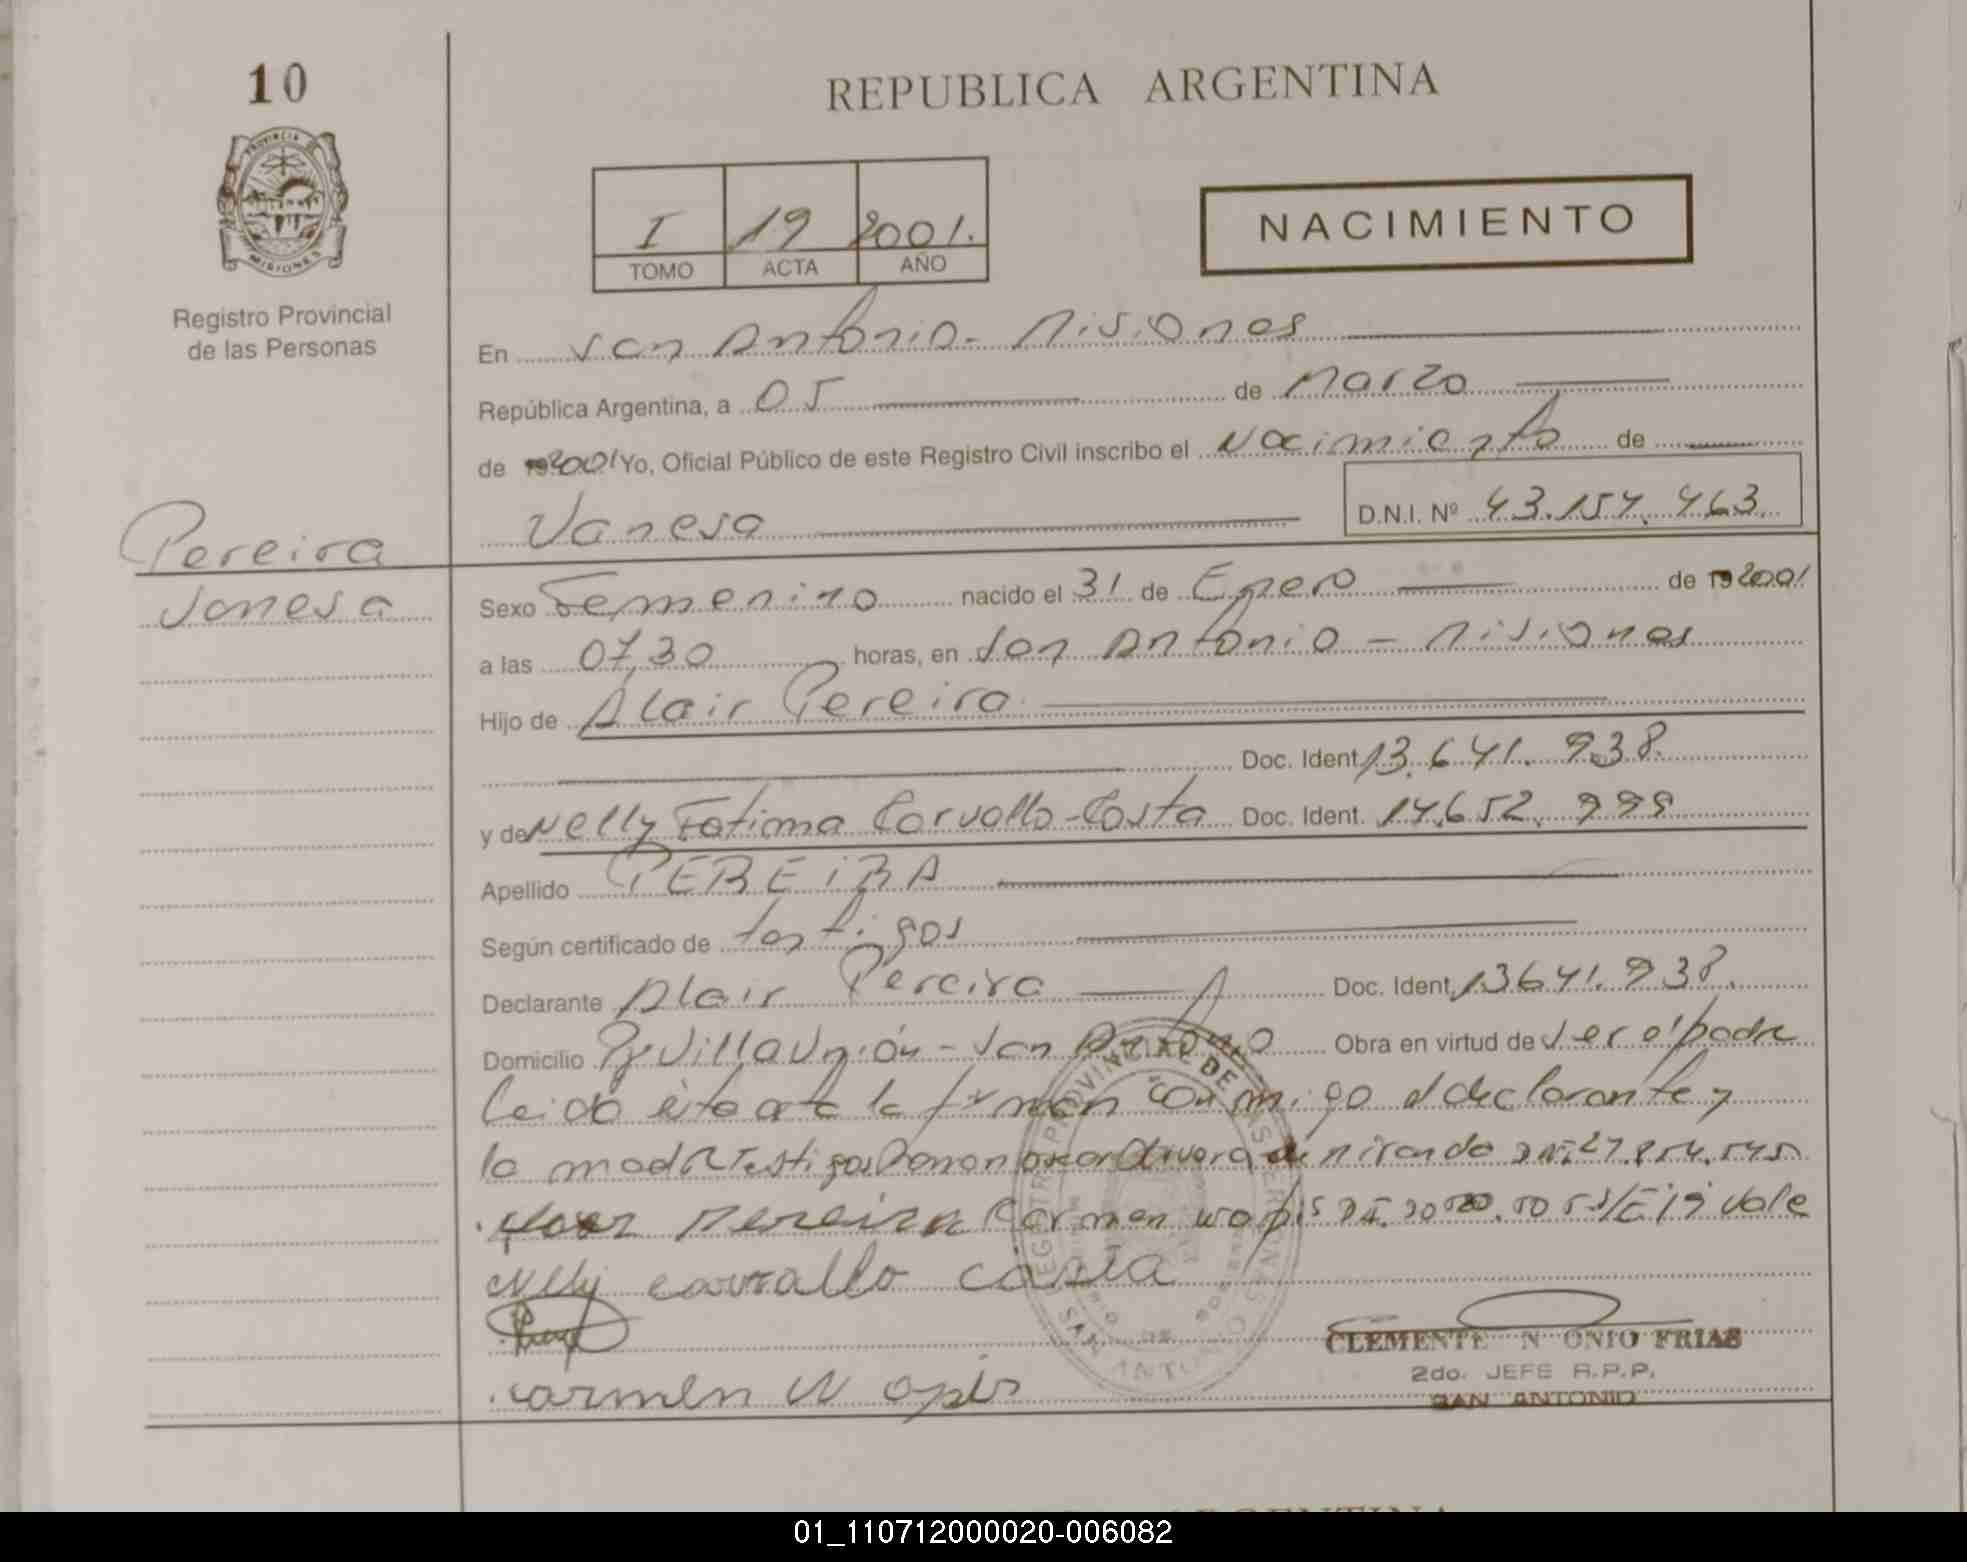 10
REPUBLICA ARGENTINA
PROVINCIA DE
MISIONES
Registro Provincial
de las Personas
I 19 2001.
TOMO ACTA AÑO
NACIMIENTO
En San Antonio - Misiones
República Argentina, a 05 de Marzo
de 192001 Yo, Oficial Público de este Registro Civil inscribo el Nacimiento de
Vanesa D.N.I. Nº 43.154.463.
Pereira
Vanesa
Sexo Femenino nacido el 31 de Enero de 192001
a las 07,30 horas, en San Antonio - Misiones
Hijo de Alair Pereira
Doc. Ident. 13.641.938.
y de Nelly Fatima Carvallo-Costa Doc. Ident. 14.652.999
Apellido PEREIRA
Según certificado de testigos
Declarante Alair Pereira Doc. Ident. 13641.938.
Domicilio Villa Unión - San Antonio Obra en virtud de ser el padre
Leido acta la firman conmigo el declarante y
la madre Testigos Ramon Oscar de Miranda 27.854.545
Pereira Carmen S/E 19 vale
Nelly carvallo costa
REGISTRO PROVINCIAL DE LAS PERSONAS
SAN ANTONIO
CLEMENTE N ONIO FRIAS
2do. JEFE R.P.P.
SAN ANTONIO
carmen
ARGENTINA
01_110712000020-006082